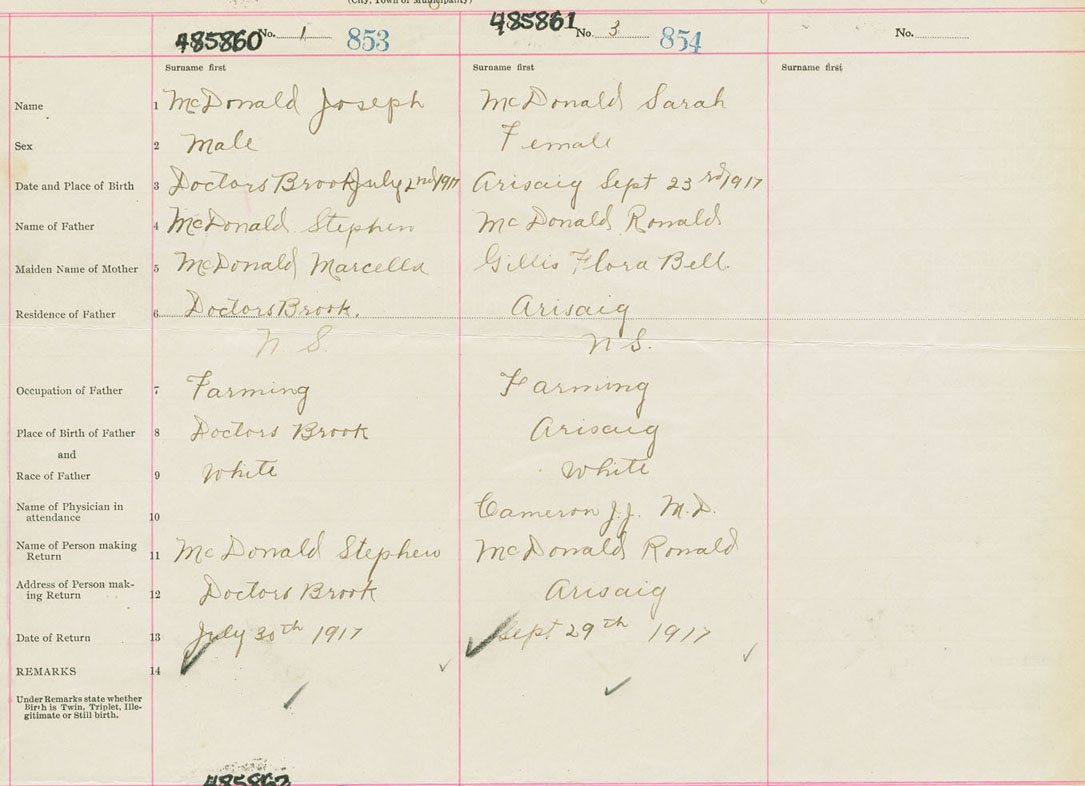 (City, Town or Municipality)
485860 No. 1 853 485861 No. 3 854 No.
Surname first Surname first Surname first
Name 1 McDonald Joseph McDonald Sarah
Sex 2 Male Female
Date and Place of Birth 3 Doctors Brook July 2nd 1917 Arisaig Sept 23rd 1917
Name of Father 4 McDonald Stephen McDonald Ronald
Maiden Name of Mother 5 McDonald Marcella Gillis Flora Bell
Residence of Father 6 Doctors Brook. Arisaig
N S. N S.
Occupation of Father 7 Farming Farming
Place of Birth of Father 8 Doctors Brook Arisaig
and
Race of Father 9 White White
Name of Physician in
attendance 10 Cameron J.J. M.D.
Name of Person making
Return 11 McDonald Stephen McDonald Ronald
Address of Person mak-
ing Return 12 Doctors Brook Arisaig
Date of Return 13 July 30th 1917 Sept 29th 1917
REMARKS 14
Under Remarks state whether
Birth is Twin, Triplet, Ille-
gitimate or Still birth.
485862